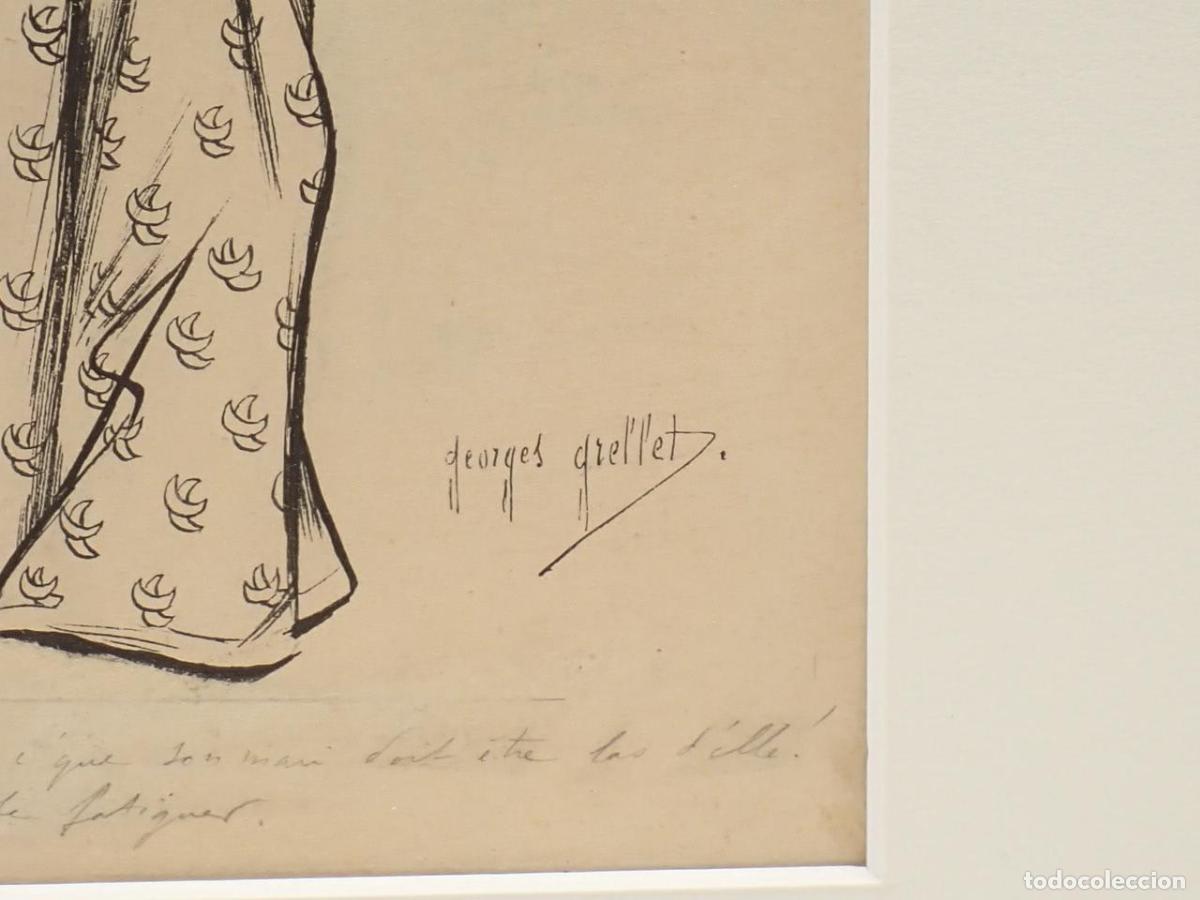 georges grellet.
c'que son mari doit être las d'elle!
fatiguer.
todocoleccion